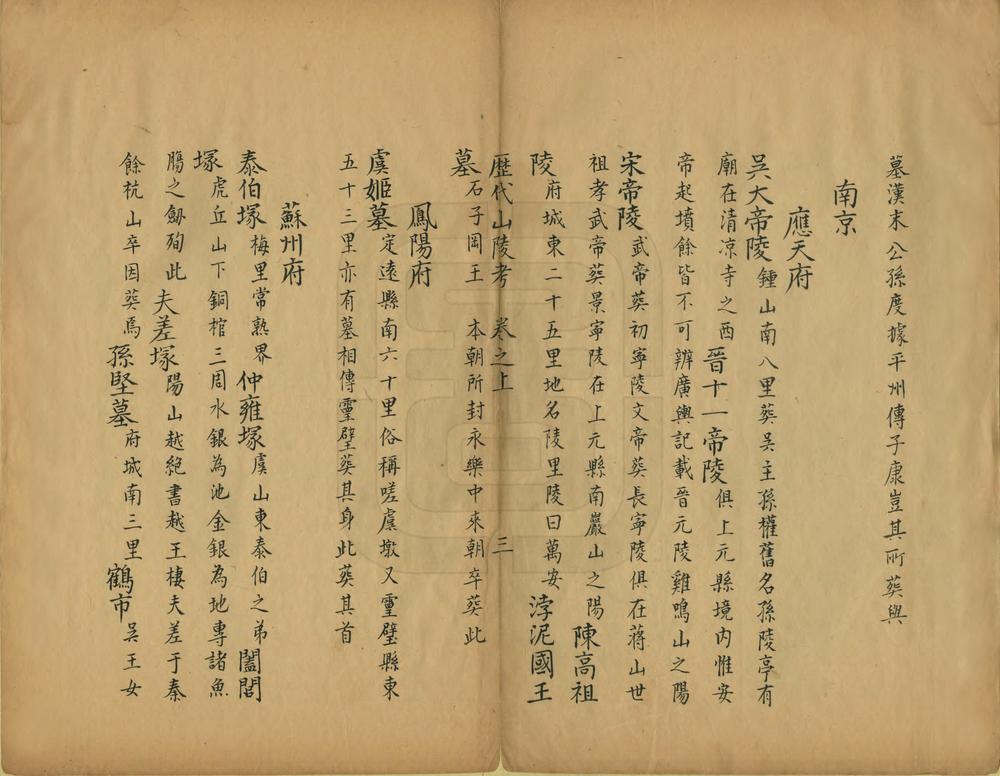 墓漢末公孫度據平州傳子康豈其所葬與
南京
應天府
吳大帝陵鍾山南八里葬吳主孫權舊名孫陵亭有
廟在清凉寺之西晉十一帝陵俱上元縣境内惟安
帝起墳餘皆不可辨廣輿記載晉元陵雞鳴山之陽
宋帝陵武帝葬初寧陵文帝葬長寧陵俱在蔣山世
祖孝武帝葬景寧陵在上元縣南巖山之陽陳高祖
陵府城東二十五里地名陵里陵曰萬安浡泥國王
歷代山陵考 卷之上 三
墓石子岡王 本朝所封永樂中來朝卒葬此
鳳陽府
虞姬墓定遠縣南六十里俗稱嗟虞墩又靈璧縣東
五十三里亦有墓相傳靈璧葬其身此葬其首
蘇州府
泰伯塚梅里常熟界仲雍塚虞山東泰伯之弟闔閭
塚虎丘山下銅棺三周水銀為池金銀為地專諸魚
腸之劔殉此夫差塚陽山越絶書越王棲夫差于秦
餘杭山卒因葬焉孫堅墓府城南三里鶴市吳王女